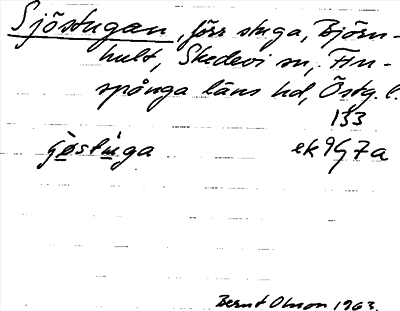 Sjöstugan, förr stuga, Björn-
hult, Skedevi sn, Fin-
spånga läns hd, Östg. l.
133
jöstuga ek 9G7a
Bernt Olsson 1963.